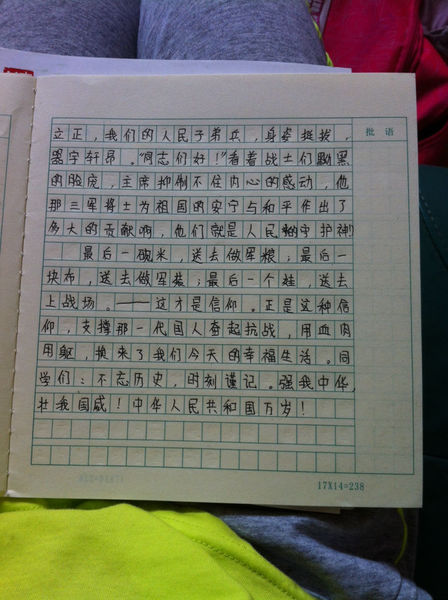 批语
立正，我们的人民子弟兵，身姿挺拔，
器宇轩昂。“同志们好！”看着战士们黝黑
的脸庞，主席抑制不住内心的感动，他
那三军将士为祖国的安宁与和平作出了
多大的贡献啊，他们就是人民的守护神！
最后一碗米，送去做军粮；最后一
块布，送去做军装；最后一个娃，送去
上战场。——这才是信仰。正是这种信
仰，支撑那一代国人奋起抗战，用血肉
用躯，换来了我们今天的幸福生活。同
学们：不忘历史，时刻谨记。强我中华，
壮我国威！中华人民共和国万岁！
17X14=238